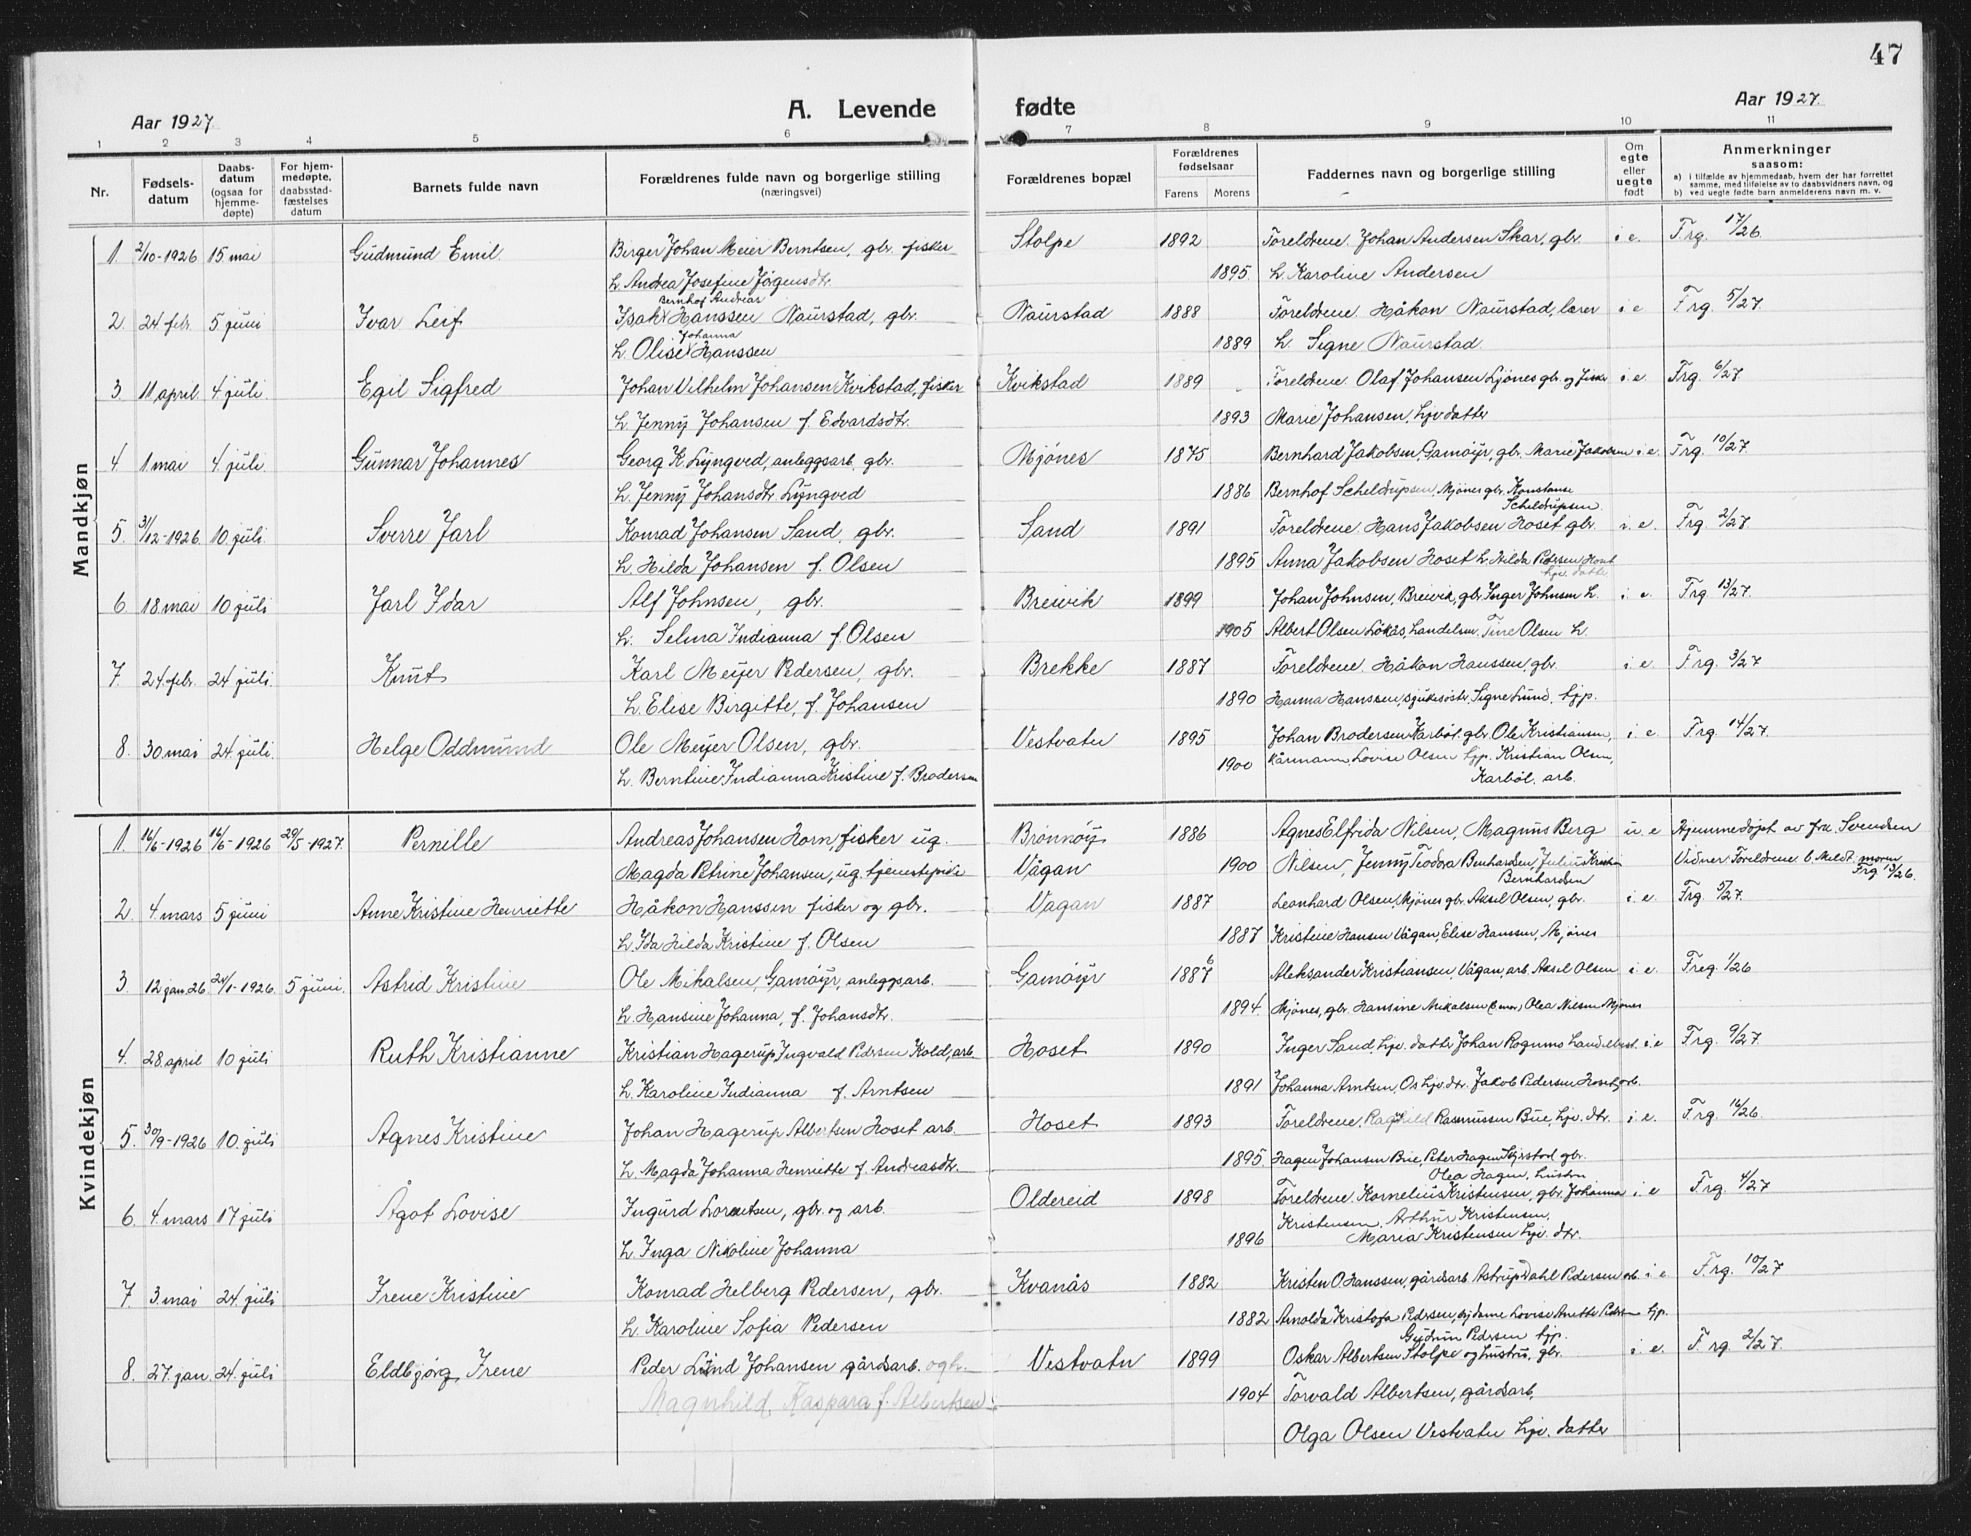 47
Aar 1927.
A. Levende fødte
Aar 1927.
1 2 3 4 5 6 7 8 9 10 11
Nr.
Fødsels-datum
Daabs-datum (ogsaa for hjemme-døpte)
For hjem-medøpte, daabsstad-fæstelses datum
Barnets fulde navn
Forældrenes fulde navn og borgerlige stilling (næringsvei)
Forældrenes bopæl
Forældrenes fødselsaar
Farens Morens
Faddernes navn og borgerlige stilling
Om egte eller uegte født
Anmerkninger
saasom:
a) i tilfælde av hjemmedaab, hvem der har forrettet samme, med tilføielse av to daabsvidners navn, og
b) ved uegte fødte barn anmelderens navn m. v.
Mandkjøn
1. 2/10-1926 15 mai Gudmund Emil Birger Johan Meier Berntsen, gbr. fisker Stolpe 1892 Foreldrene. Johan Andersen Skar, gbr. i e. Frg. 17/26.
h. Andrea Josefine Jörgensdtr. 1895. h. Karoline Andersen
Bernhof Andreas
2. 24 febr. 5 juni Ivar Leif Isak Hanssen Naurstad, gbr. Naurstad 1888 Foreldrene. Håkon Naurstad, lærer i e Frg. 5/27.
Johanna
h. Olise Hanssen 1889 h. Signe Naurstad.
3. 11 april. 4 juli. Egil Sigfred Johan Vilhelm Johansen Kvikstad, fisker Kvikstad 1889 Foreldrene. Olaf Johansen Ljönes gbr. og fisker i. e. Frg. 6/27.
h. Jenny Johansen f. Edvardsdtr. 1893 Marie Johansen, hjv. datter
4 1 mai 4. juli. Gunnar Johannes Georg K. Lyngved, anleggsarb. gbr. Mjönes 1875 Bernhard Jakobsen, Gamöyr, gbr. Marie Jakobsen i e. Frg. 10/27.
h. Jenny Johansdtr. Lyngved 1886 Bernhof Scheldrupsen, Mjönes gbr. Konstanse
Scheldrupsen
5. 31/12-1926 10. juli. Sverre Jarl Konrad Johansen Sand, gbr. Sand 1891 Foreldrene. Hans Jakobsen Hoset gbr. i. e. Frg. 2/27
h. Hilda Johansen f. Olsen 1895 Anna Jakobsen Hoset h. Hilda Pedersen Hoset
hjv. datter
6. 18. mai 10 juli Jarl Idar Alf Johnsen, gbr. Breivik 1899 Johan Johnsen, Breivik, gbr. Inger Johnsen h. i. e. Frg 13/27.
h. Selma Indianna f. Olsen 1905 Albert Olsen Lökås, handelsm. Tine Olsen h.
7. 24. febr. 24 juli. Knut Karl Meyer Pedersen, gbr. Brekke 1887 Foreldrene. Håkon Hanssen, gbr. i e. Frg. 3/27
h. Elise Birgitte, f. Johansen 1890 Hanna Hanssen, sjukesöster, Signe Lund, hjp.
8. 30 mai 24. juli. Helge Oddmund Ole Meyer Olsen, gbr. Vestvatn 1895 Johan Brodersen Karböl. gbr. Ole Kristiansen, i. e. Frg. 14/27.
h. Berntine Indianna Kristine f. Brodersen 1900 Lovise Olsen hjp. Kristian Olsen,
Karböl. arb.
Kvindekjøn
1. 16/6-1926 16/6-1926 29/5-1927. Pernille Andreas Johansen Horn, fisker ug. Brönnöy 1886 Agnes Elfrida Nilsen, Magnus Berg u. e Hjemmedöpt av frk. Svendsen
Magda Petrine Johansen, ug. tjenestepike Vågan 1900 Nilsen, Jenny Teodora Bernhardsen, Julius Kristian Vidner Foreldrene b Meldt moren
Bernhardsen Frg 13/26.
2. 4. mars 5 juni Anne Kristine Henriette Håkon Hanssen fisker og gbr. Vågan 1887 Leonhard Olsen, Mjönes gbr. Aksel Olsen, gbr. i. e. Frg. 5/27.
h. Ida Hilda Kristine f. Olsen 1887 Kristine Hansen Vågan, Elise Hanssen, Mjönes
3. 12 jan. 26 24/1-1926. 5 juni. Astrid Kristine Ole Mikalsen, Gamöyr, anleggsarb. Gamöyr 1887 6 Aleksander Kristiansen, Vågan, arb. Aksel Olsen i. e. Freg. 1/26
h. Hansine Johanna, f. Johansdtr. 1894. Mjönes, gbr. Hansine Mikalsen (mor) Olea Nilsen Mjönes
4. 28. april 10 juli Ruth Kristianne Kristian Hagerup Ingvald Pedersen Kold, arb. Hoset 1890 Inger Sand, hjv. datter Johan Rognmo handelsbest. i e Frg. 9/27.
h. Karoline Indianna f. Arntsen 1891 Johanna Arntsen, Os hjv. dtr. Jakob Pedersen Hoset, arb.
5. 30/9-1926 10. juli Agnes Kristine Johan Hagerup Albertsen Hoset arb. Hoset 1893 Foreldrene. Ragnhild Rasmussen Bue, hjv. dtr. i e. Frg. 16/26.
h. Magda Johanna Henriette f. Andreasdtr. 1895. Hagen Johansen Bue, Peter Hagen gbr.
Olea Hagen, hustru
6. 4. mars 17 juli Ågot Lovise Ingurd Lorentsen, gbr. og arb. Oldereid 1898 Foreldrene. Kornelius Kristensen, gbr. Johanna i e Frg. 4/27
h. Inga Nikoline Johanna 1896 Kristensen. Arthur Kristensen,
Maria Kristensen hjv. dtr.
7. 3. mai 24. juli Irene Kristine Konrad Helberg Pedersen, gbr. Kvanås 1882 Kristen O. Hanssen, gårdsarb. Astrup Dahl Pedersen arb. i e Frg. 10/27
h. Karoline Sofia Pedersen 1882 Arnolda Kristofa Pedersen, sydame Lovise Anette Pedersen hjp.
Gudrun Pedersen hjp.
8. 27. jan 24. juli Eldbjörg Irene Peder Lind Johansen gårdsarb. og h. Vestvatn 1899 Oskar Albertsen Stolpe og hustru, gbr. i. e. Frg. 2/27.
Magnhild Kaspara f. Albertsen 1904 Torvald Albertsen, gårdsarb.
Olga Olsen Vestvatn hjv. datter